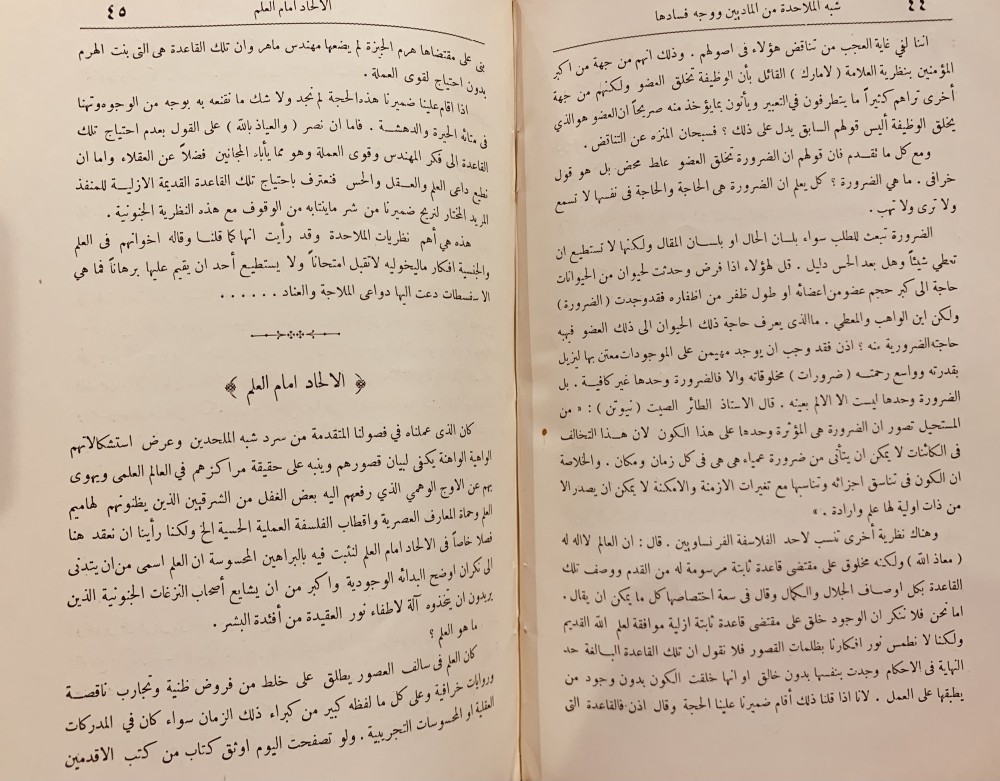 ٤٤
شبه الملاحدة من الماديين ووجه فسادها
اننا لفي غاية العجب من تناقض هؤلاء فى اصولهم . وذلك انهم من جهة من اكبر
المؤمنين بنظرية العلامة ( لامارك ) القائل بأن الوظيفة تخلق العضو ولكنهم من جهة
أخرى تراهم كثيراً ما يتطرفون في التعبير ويأتون بما يؤخذ منه صريحاً ان العضو هو الذي
يخلق الوظيفة أليس قولهم السابق يدل على ذلك ؟ فسبحان المنزه عن التناقض .
ومع كل ما تقدم فان قولهم ان الضرورة تخلق العضو غلط محض بل هو قول
خرافى . ما هي الضرورة ؟ كل يعلم ان الضرورة هى الحاجة والحاجة فى نفسها لا تسمع
ولا ترى ولا تهب .
الضرورة تبعث للطلب سواء بلسان الحال او بلسان المقال ولكنها لا تستطيع ان
تعطي شيئاً وهل بعد الحس دليل . قل لهؤلاء اذا فرض وحدثت لحيوان من الحيوانات
حاجة الى كبر حجم عضو من اعضائه او طول ظفر من اظفاره فقد وجدت ( الضرورة )
ولكن اين الواهب والمعطي . ما الذى يعرف حاجة ذلك الحيوان الى ذلك العضو فيهبه
حاجته الضرورية منه ؟ اذن فقد وجب ان يوجد مهيمن على الموجودات معتن بها ليزيل
بقدرته وواسع رحمته ( ضرورات ) مخلوقاته والا فالضرورة وحدها غير كافية . بل
الضرورة وحدها ليست الا الالم بعينه . قال الاستاذ الطائر الصيت ( نيوتن ) : « من
المستحيل تصور ان الضرورة هى المؤثرة وحدها على هذا الكون لان هذا التخالف
فى الكائنات لا يمكن ان يتأتى من ضرورة عمياء هى هى فى كل زمان ومكان . والخلاصة
ان الكون فى تناسق اجزائه وتناسبها مع تغيرات الازمنة والامكنة لا يمكن ان يصدر الا
من ذات اولية لها علم وارادة . »
وهناك نظرية أخرى تنسب لاحد الفلاسفة الفرنساويين . قال : ان العالم لا اله له
( معاذ الله ) ولكنه مخلوق على مقتضى قاعدة ثابتة مرسومة له من القدم ووصف تلك
القاعدة بكل اوصاف الجلال والكمال وقال فى سعة اختصاصها كل ما يمكن ان يقال .
اما نحن فلا ننكر ان الوجود خلق على مقتضى قاعدة ثابتة ازلية موافقة لعلم الله القديم
ولكنا لا نطمس نور افكارنا بظلمات القصور فلا نقول ان تلك القاعدة البالغة حد
النهاية فى الاحكام وجدت بنفسها بدون خالق او انها خلقت الكون بدون وجود من
يطبقها على العمل . لانا اذا قلنا ذلك أقام ضميرنا علينا الحجة وقال اذن فالقاعدة التى
الالحاد امام العلم
٤٥
بنى على مقتضاها هرم الجيزة لم يضعها مهندس ماهر وان تلك القاعدة هى التى بنت الهرم
بدون احتياج لقوى العملة .
اذا اقام علينا ضميرنا هذه الحجة لم نجد ولا شك ما نقنعه به بوجه من الوجوه وتهنا
فى متائه الحيرة والدهشة . فاما ان نصر ( والعياذ بالله ) على القول بعدم احتياج تلك
القاعدة الى فكر المهندس وقوى العملة وهو مما يأباه المجانين فضلاً عن العقلاء واما ان
نطيع داعى العلم والعقل والحس فنعترف باحتياج تلك القاعدة القديمة الازلية للمنفذ
المريد المختار لنريح ضميرنا من شر ما ينتابه من الوقوف مع هذه النظرية الجنونية .
هذه هي أهم نظريات الملاحدة وقد رأيت انها كما قلنا وقاله اخوانهم فى العلم
والجنسية افكار ماليخوليه لا تقبل امتحاناً ولا يستطيع أحد ان يقيم عليها برهاناً فما هي
الا سفسطات دعت اليها دواعى الملاجة والعناد . . . . . .
﴿ الالحاد امام العلم ﴾
كان الذى عملناه في فصولنا المتقدمة من سرد شبه الملحدين وعرض استشكالاتهم
الواهية الواهنة يكفى لبيان قصورهم وينبه على حقيقة مراكزهم في العالم العلمى ويهوى
بهم عن الاوج الوهمي الذي رفعهم اليه بعض الغفل من الشرقيين الذين يظنونهم لهاميم
العلم وحماة المعارف العصرية واقطاب الفلسفة العملية الحسية الخ ولكنا رأينا ان نعقد هنا
فصلا خاصاً فى الالحاد امام العلم لنثبت فيه بالبراهين المحسوسة ان العلم اسمى من ان يتدنى
الى نكران اوضح البدائه الوجودية واكبر من ان يشايع أصحاب النزغات الجنونية الذين
يريدون ان يتخذوه آلة لاطفاء نور العقيدة من أفئدة البشر .
ما هو العلم ؟
كان العلم فى سالف العصور يطلق على خلط من فروض ظنية وتجارب ناقصة
وروايات خرافية وعلى كل ما لفظه كبير من كبراء ذلك الزمان سواء كان في المدركات
العقلية او المحسوسات التجريبية . ولو تصفحت اليوم اوثق كتاب من كتب الاقدمين